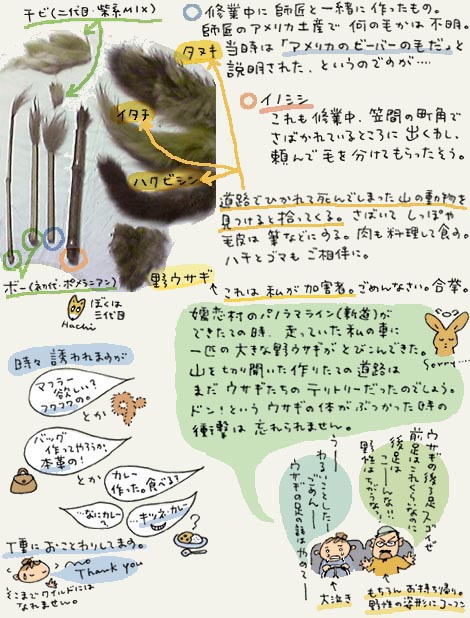 チビ(二代目・柴系MIX)
修業中に師匠と一緒に作ったもの。
師匠のアメリカ土産で何の毛かは不明。
当時は「アメリカのビーバーの毛だ」と
説明された、というのですが‥‥
タヌキ
イタチ
ハクビシン
イノシシ
これも修業中、笠間の町角で
さばかれているところに出くわし、
頼んで毛を分けてもらったそう。
道路でひかれて死んでしまった山の動物を
見つけると拾ってくる。さばいてしっぽや
毛皮は筆などにする。肉も料理して食す。
ハチとゴマもご相伴に。
野ウサギ
これは私が加害者。ごめんなさい。合掌。
ボー(初代・ポメラニアン)
ぼくは
三代目
Hachi
嬬恋村のパノラマライン(新道)が
できたての時、走っていた私の車に
一匹の大きな野ウサギがとびこんできた。
山を切り開いた作りたての道路は
まだウサギたちのテリトリーだったのでしょう。
ドン!というウサギの体がぶつかった時の
衝撃は忘れられません。
Sorry‥‥
時々誘われますが
マフラー
欲しい?
フワフワの。
とか
バッグ
作ってやろうか、
本革の!
とか
カレー
作った。食べる?
…なにカレー?
…キツネ・カレー
丁重におことわりしてます。
No
Thank you
そこまでワイルドには
なれません。
ウサギの後ろ足スゴイぜ
前足はこれくらいなのに
後足は
こーんな!!
野性はちがうな!
うー
わるいことしたー
ごめんー
ウサギの足の話はやめてー
大泣き
もちろんお持ち帰り。
野性の姿形にコーフン